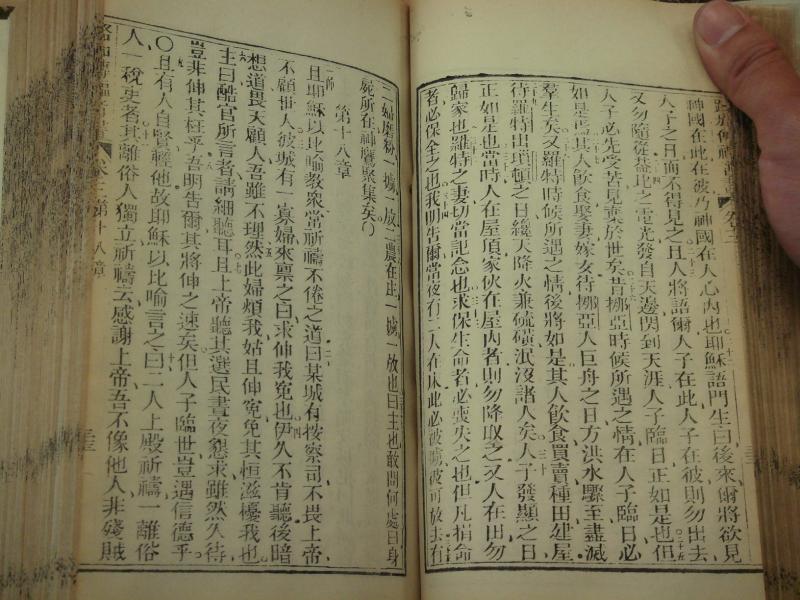 神國在此在彼乃神國在人心內也耶穌語門生曰後來爾將欲見
人子之日而不得見之且人將語爾人子在此人子在彼則勿出去
又勿隨從蓋比之電光發自天邊閃到天涯人子臨日正如是也但
人子必先受苦見棄於世矣昔挪亞時候所遇之情在人子臨日必
如是焉其人飲食娶妻嫁女待挪亞入巨舟之日方洪水驟至盡滅
羣生矣又羅特時候所遇之情後將如是其人飲食買賣種田建屋
待羅特出瑣頓之日纔天降火兼硫磺泯沒諸人矣人子發顯之日
正如是也當時人在屋頂家伙在屋內者則勿降取之又人在田勿
歸家也羅特之妻切當記念也求保生命者必喪失之也但凡捐命
者必保全之也我明告爾當夜有二人在床此必被擄彼可放去有
二婦磨粉一擄一放二農在田一擄一放也曰主也敢問何處曰身
屍所在神鷹聚集矣
第十八章
且耶穌以比喻教眾當祈禱不倦之道曰某城有按察司不畏上帝
不顧世人彼城有一寡婦來禀之曰求伸我冤也伊久不肯聽後暗
想道畏天顧人吾雖不理然此婦煩我姑且伸冤免其恒滋擾我也
主曰酷官所言者請細聽耳且上帝聽其選民晝夜懇求雖然久待
豈非伸其枉乎吾明告爾其將伸之速矣但人子臨世豈遇信德乎
○且有人自賢輕他故耶穌以比喻言之曰二人上殿祈禱一離俗
人一稅吏者其離俗人獨立祈禱云感謝上帝吾不像他人非殘賊
卷三第十八章